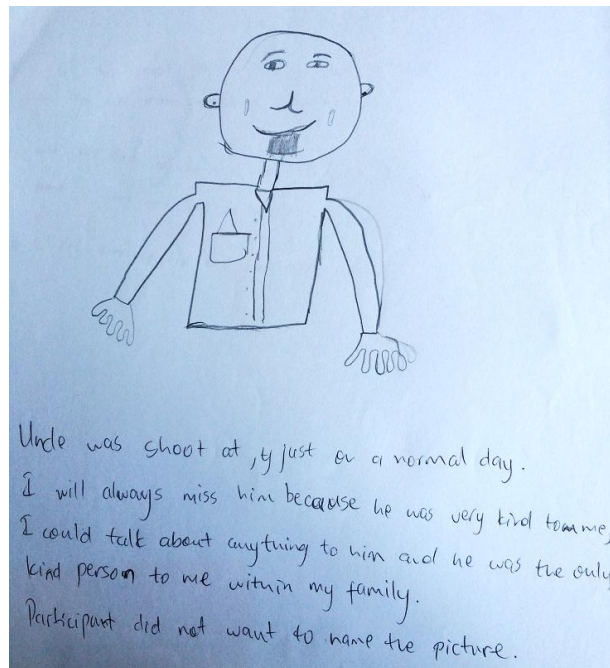 Uncle was shoot at , just on a normal day.
I will always miss him because he was very kind to me,
I could talk about anything to him and he was the only
kind person to me within my family.
Participant did not want to name the picture.